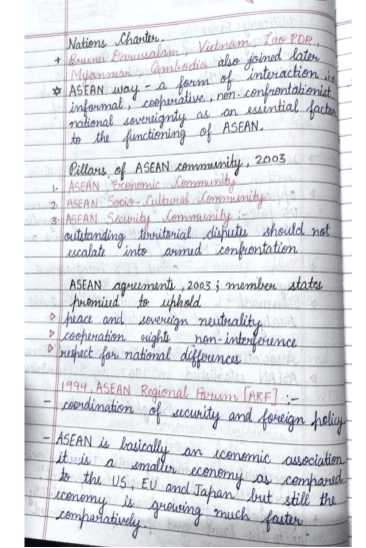 Nations Charter.
+ Brunei Darussalam, Vietnam, Lao PDR,
Myanmar, Cambodia also joined later
☆ ASEAN way - a form of interaction
informal, cooperative, non-confrontationist,
national sovereignty as an essential factor
to the functioning of ASEAN.
Pillars of ASEAN community, 2003
1. ASEAN Economic Community
2. ASEAN Socio-Cultural Community
3. ASEAN Security Community :-
outstanding territorial disputes should not
escalate into armed confrontation
ASEAN agreements, 2003 ; member states
promised to uphold
▷ peace and sovereign neutrality
▷ cooperation rights non-interference
▷ respect for national differences
1994, ASEAN Regional Forum [ARF] :-
- coordination of security and foreign policy
- ASEAN is basically an economic association
it is a smaller economy as compared
to the US, EU and Japan but still the
economy is growing much faster
comparatively.